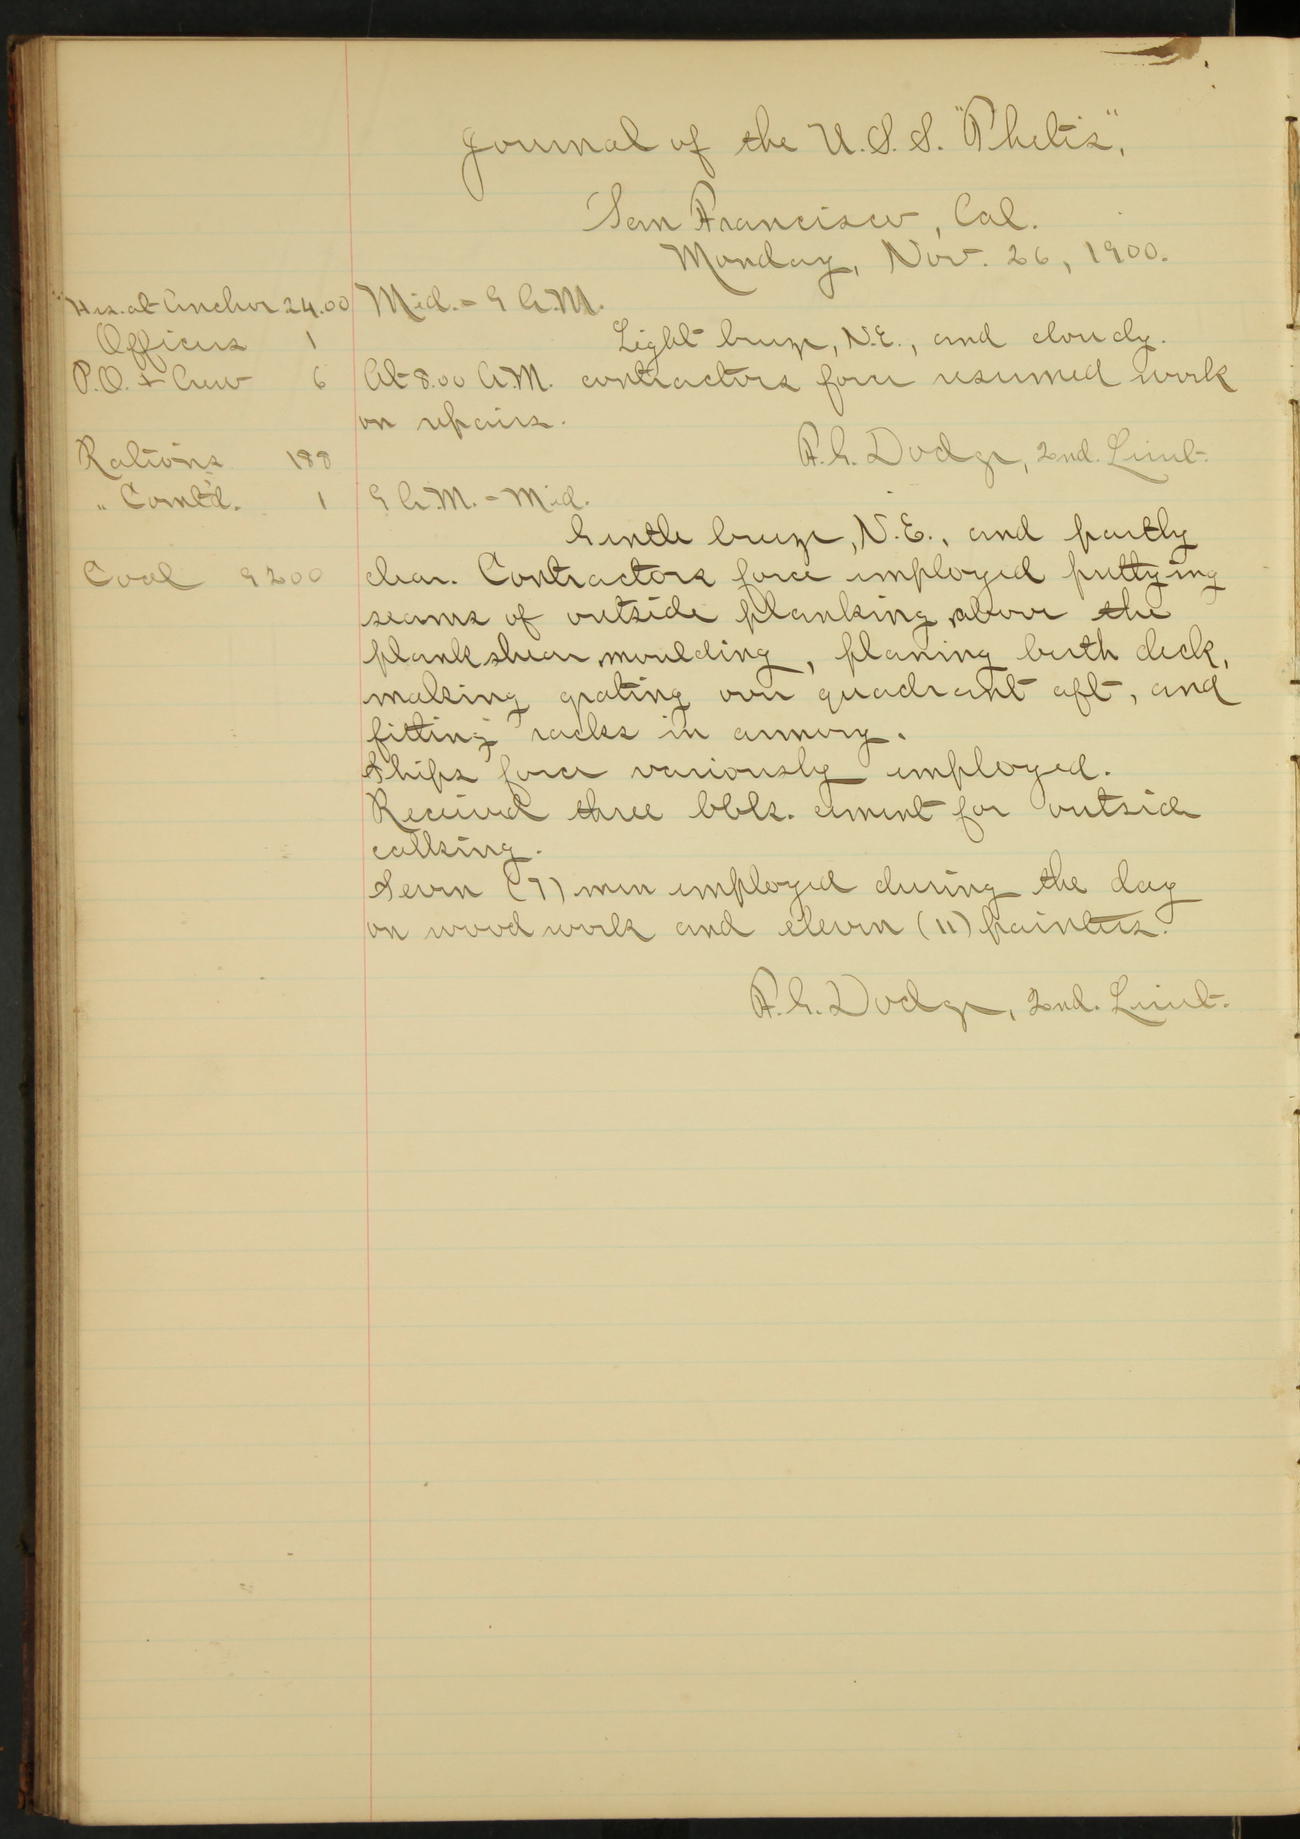 Journal of the U.S.S. "Thetis",
San Francisco, Cal.
Monday, Nov. 26, 1900.
Hrs. at Anchor 24.00
Officers 1
P.O. & Crew 6
Rations 188
" Com't'd. 1
Coal 9200
Mid. - 9 A.M.
Light breeze, N.E., and cloudy.
At 8.00 A.M. contractors force resumed work
on repairs.
F. G. Dodge, 2nd. Lieut.
9 A.M. - Mid.
Gentle breeze, N.E., and partly
clear. Contractors force employed puttying
seams of outside planking above the
plankshear moulding, planing berth deck,
making grating over quadrant aft, and
fitting racks in armory.
Ships force variously employed.
Received three bbls. cement for outside
calking.
Seven (7) men employed during the day
on wood work and eleven (11) painters.
F. G. Dodge, 2nd. Lieut.